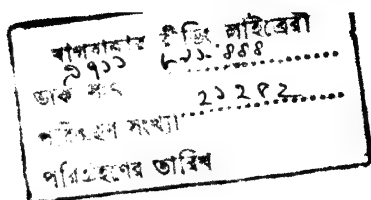 বাগবাজার রীডিং লাইব্রেরী
ডাক সংখ্যা
পরিগ্রহণ সংখ্যা ২১২৫২
পরিগ্রহণের তারিখ